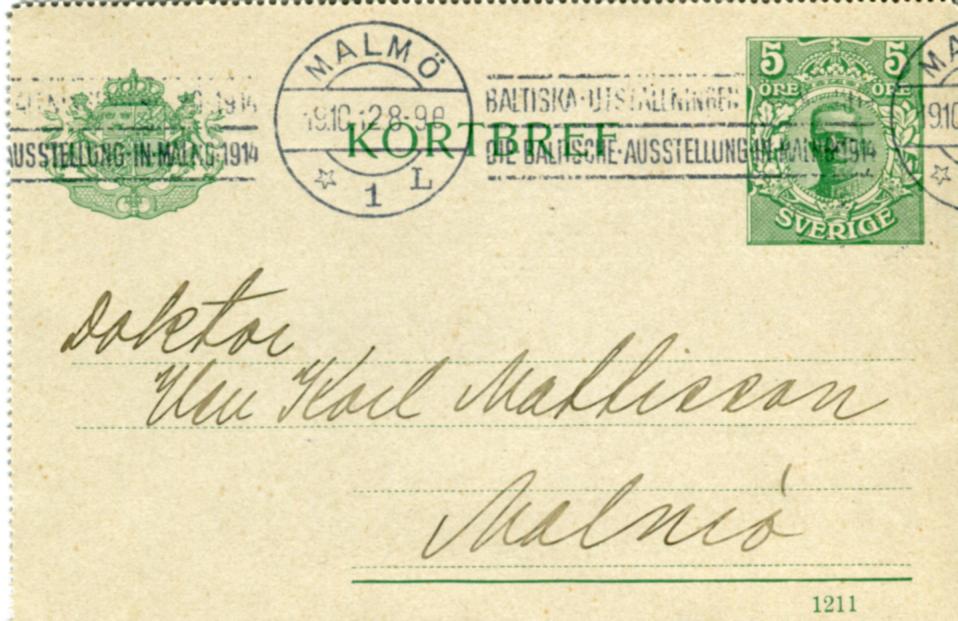 MALMÖ
19.10.12.8-9F
* 1 L
BALTISKA·UTSTÄLLNINGEN
1914
AUSSTELLUNG·IN·MALMÖ·1914
DIE BALTISCHE·AUSSTELLUNG·IN·MALMÖ·1914
KORTBREF
5 5
ÖRE ÖRE
SVERIGE
MA
9.10
Doktor
Karl Mattisson
Malmö
1211